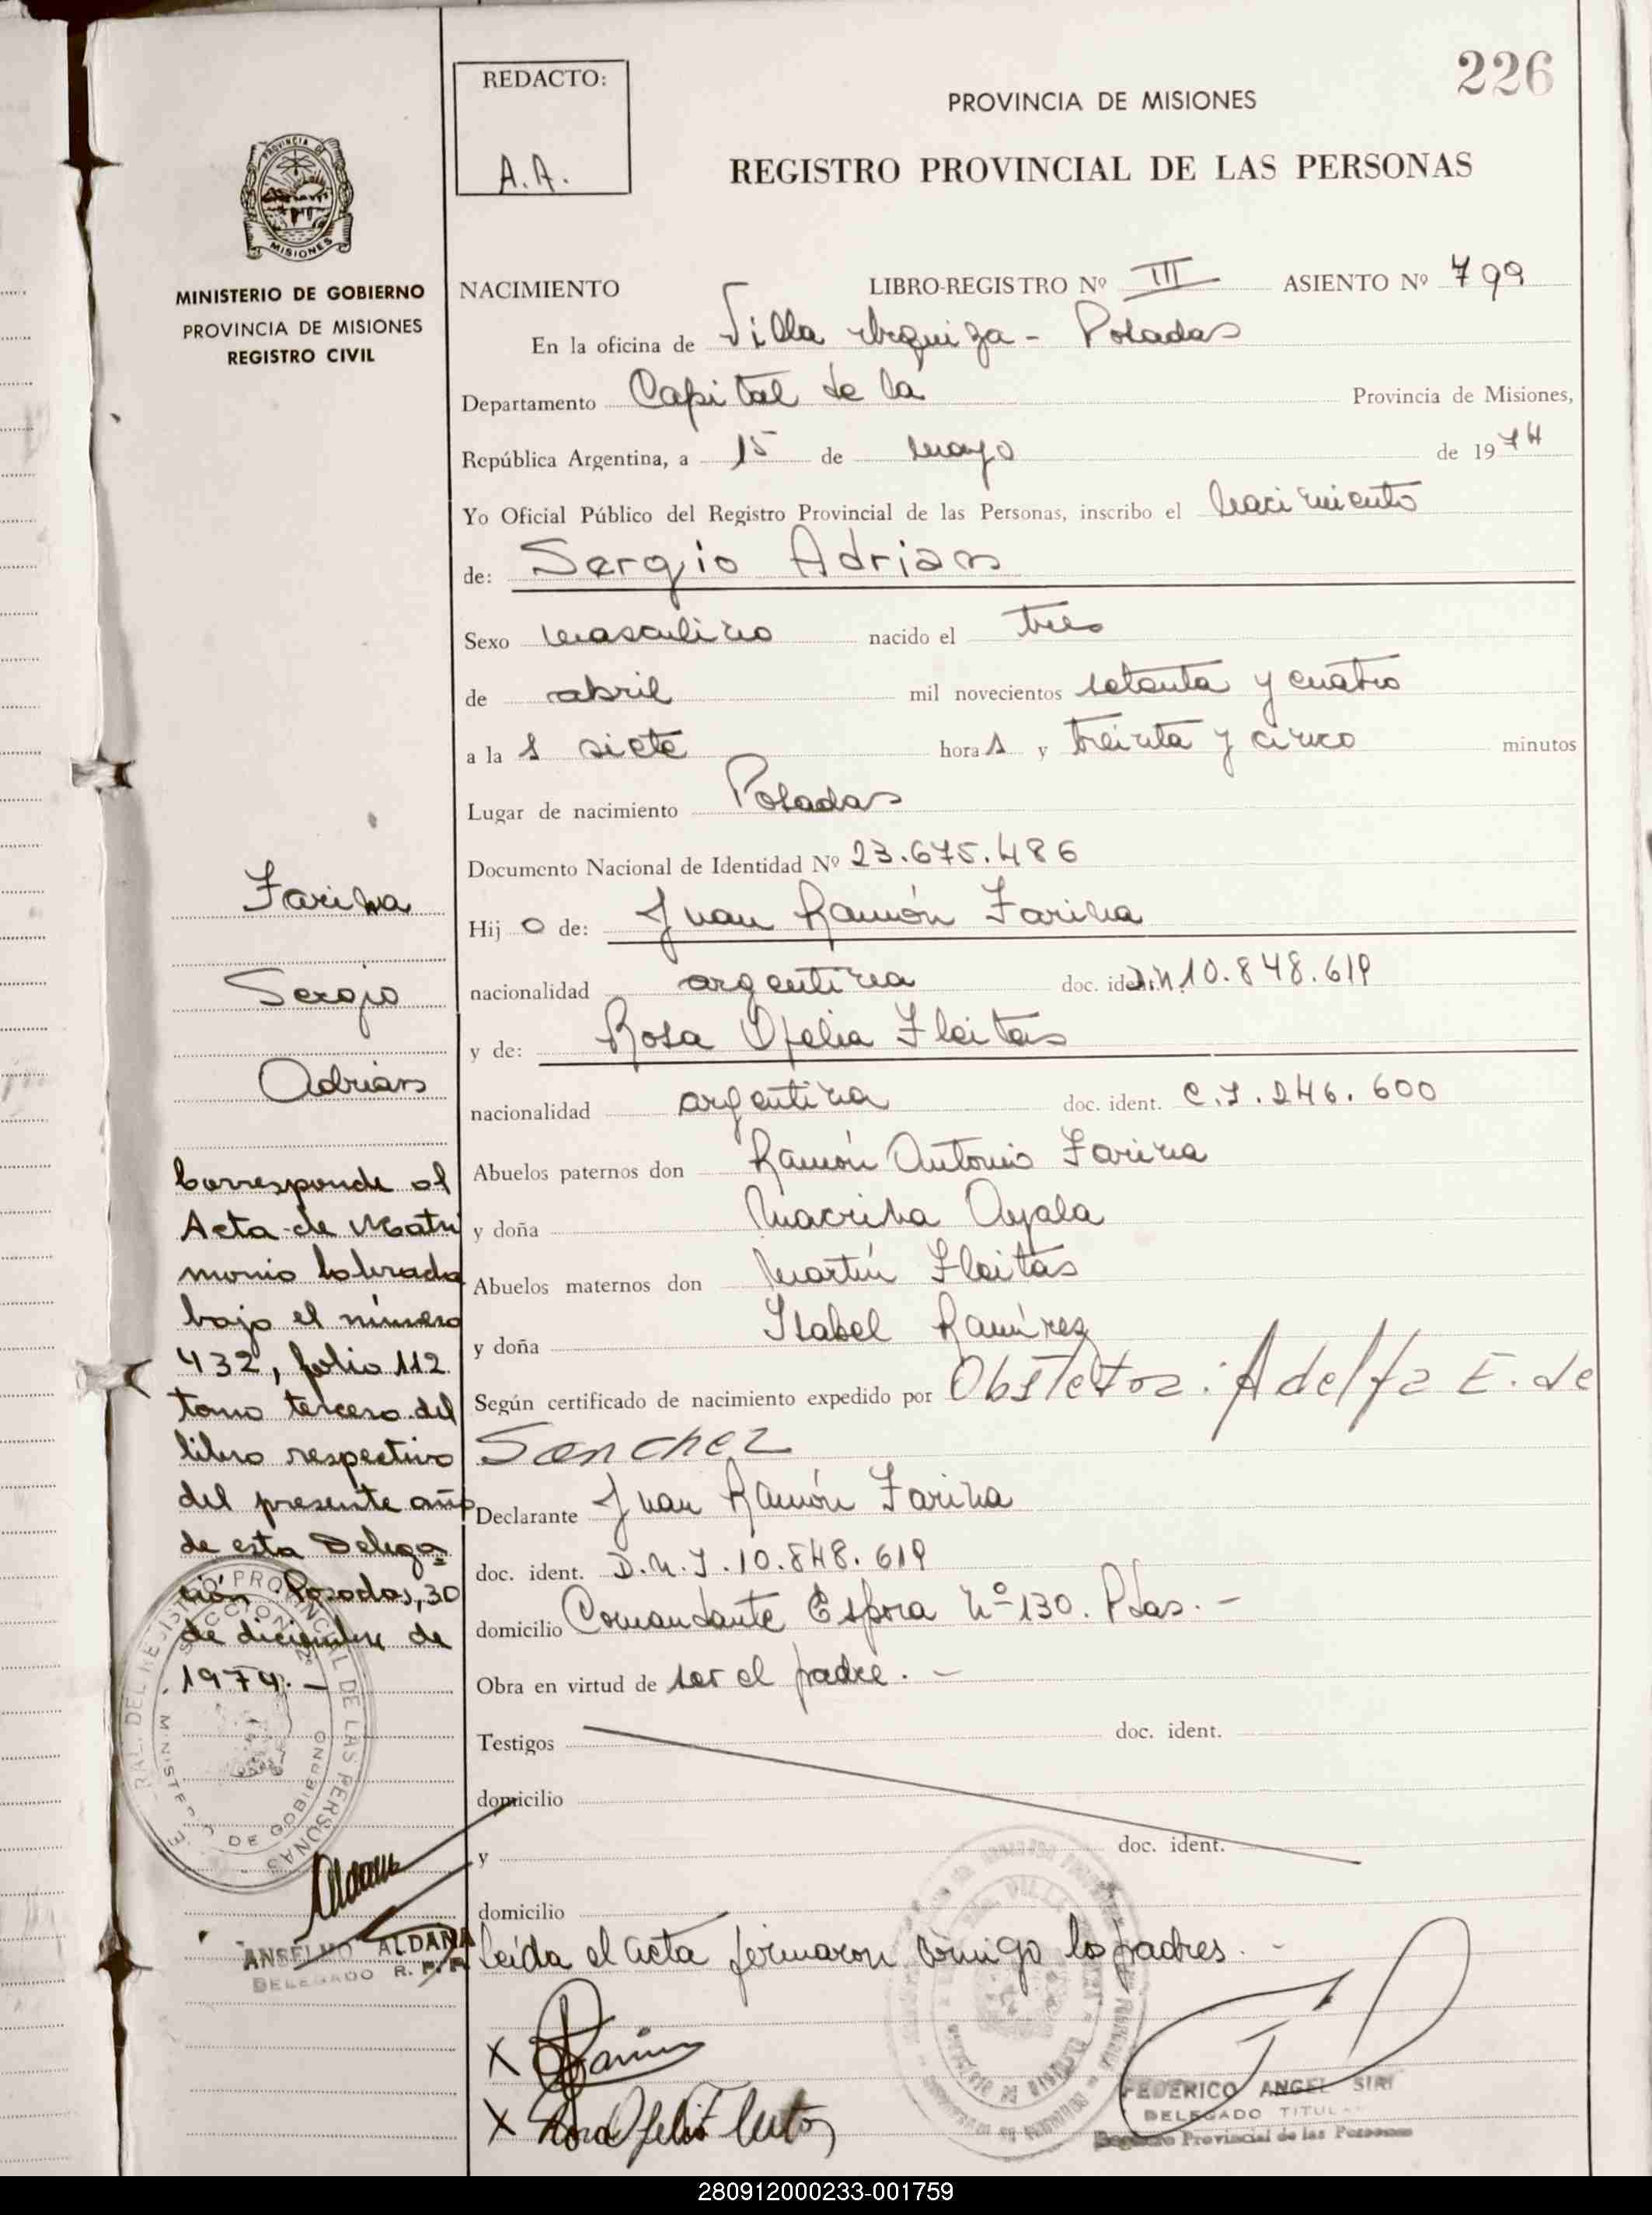 226
REDACTO:
A.A.
PROVINCIA DE MISIONES
REGISTRO PROVINCIAL DE LAS PERSONAS
MISIONES
MINISTERIO DE GOBIERNO
PROVINCIA DE MISIONES
REGISTRO CIVIL
NACIMIENTO LIBRO-REGISTRO Nº III ASIENTO Nº 799
En la oficina de Villa Urquiza - Posadas
Departamento Capital de la Provincia de Misiones,
República Argentina, a 15 de mayo de 1974
Yo Oficial Público del Registro Provincial de las Personas, inscribo el nacimiento
de: Sergio Adrian
Sexo masculino nacido el tres
de abril mil novecientos setenta y cuatro
a la s siete hora s y treinta y cinco minutos
Lugar de nacimiento Posadas
Documento Nacional de Identidad Nº 23.675.486
Hij o de: Juan Ramón Farina
nacionalidad argentina doc. ident. 10.848.619
y de: Rosa Ofelia Fleitas
nacionalidad argentina doc. ident. C.I. 246.600
Abuelos paternos don Ramón Antonio Farina
y doña Macrina Ayala
Abuelos maternos don Martín Fleitas
y doña Isabel Ramírez
Según certificado de nacimiento expedido por Obstetra: Adelfa E. de
Sanchez
Declarante Juan Ramón Farina
doc. ident. D.N.I. 10.848.619
domicilio Comandante Espora Nº 130. Pdas. -
Obra en virtud de ser el padre. -
Testigos doc. ident.
domicilio
y doc. ident.
domicilio
Leída el acta firmaron conmigo los padres. -
X Farina
X Rosa Ofelia Fleitas
FEDERICO ANGEL SIRI
DELEGADO TITULAR
Registro Provincial de las Personas
Farina
Sergio
Adrian
Corresponde al
Acta de Matri
monio labrada
bajo el número
432, folio 112
tomo tercero del
libro respectivo
del presente año
de esta Delega
ción Posadas, 30
de diciembre de
1974. -
ANSELMO ALDANA
DELEGADO R. P. P.
280912000233-001759